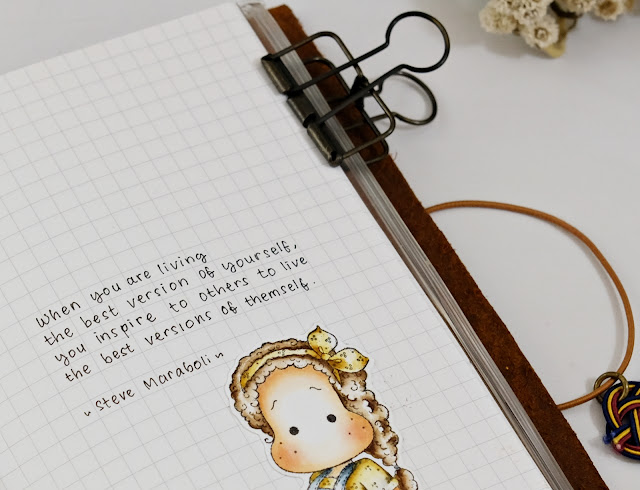 When you are living
the best version of yourself,
you inspire to others to live
the best versions of themself.
~Steve Maraboli~